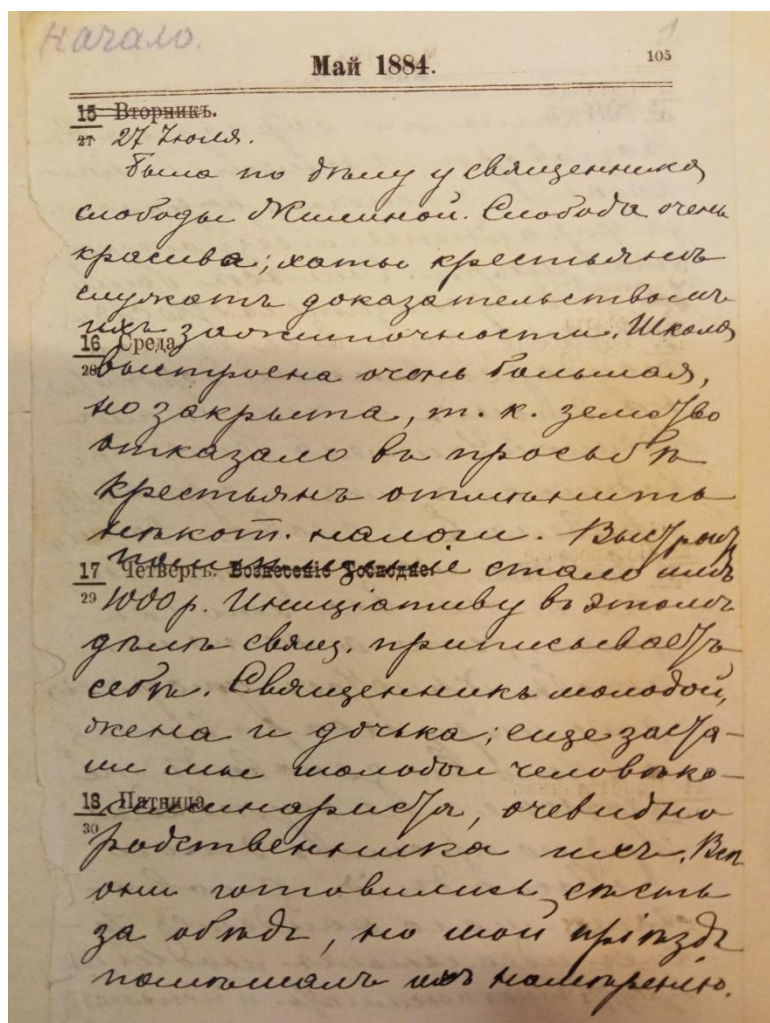 начало.
1
Май 1884.
105
15 Вторникъ.
27
27 Іюля.
Была по дѣлу у священника
слободы Жилиной. Слобода очень
красива; хаты крестьянъ
служатъ доказательствомъ
ихъ зажиточности. Школа
16 Среда.
28
выстроена очень большая,
но закрыта, т. к. земство
отказало въ просьбѣ
крестьянъ отмѣнить
нѣкот. налоги.
17 Четвергъ. Вознесеніе Господне.
стало имъ
29
1000 р. Иниціативу въ этомъ
дѣлѣ свящ. приписываетъ
себѣ. Священникъ молодой,
жена и дочька; еще заста-
ли мы молодого человѣка-
18 Пятница.
семинариста, очевидно
30
родственника ихъ. Всѣ
они готовились сѣсть
за обѣдъ, но мой пріѣздъ
помѣшалъ ихъ намѣренію.